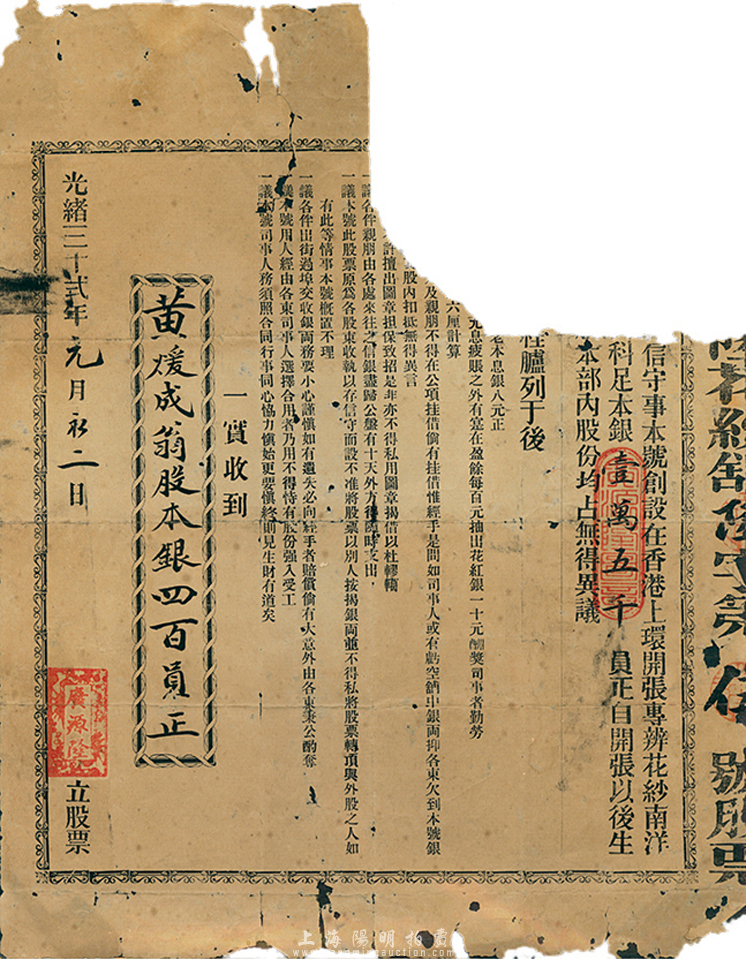 號股票
信守事本號創設在香港上環開張專辦花紗南洋
科足本銀壹萬五千員正自開張以後生
本部內股份均占無得異議
程臚列于後
老本息銀八元正
元息疲賬之外有寔在盈餘每百元抽出花紅銀一十元酬獎司事者勤勞
六厘計算
及親朋不得在公項挂借倘有挂借惟經手是問如司事人或有虧空舖中銀両抑各東欠到本號銀
股內扣抵無得異言
許擅出圖章担保致招是非亦不得私用圖章揭借以杜轇轕
議各伴親朋由各處來往之信銀盡歸公盤有十天外方得隨時支出
一議本號此股票原為各股東收執以存信守而設不准將股票以別人按揭銀両並不得私將股票轉頂與外股之人如
有此等情事本號概置不理
一議各伴出街過埠交收銀両務要小心謹慎如有遺失必向經手者賠償倘有大意外由各東秉公酌奪
一議本號用人經由各東司事人選擇合用者乃用不得恃有股份強入受工
一議本號司事人務須照合同行事同心協力慎始更要慎終則見生財有道矣
一實收到
黃煖成翁股本銀四百員正
光緒三十弍年元月初二日
廣源隆
立股票
上海陽明拍賣